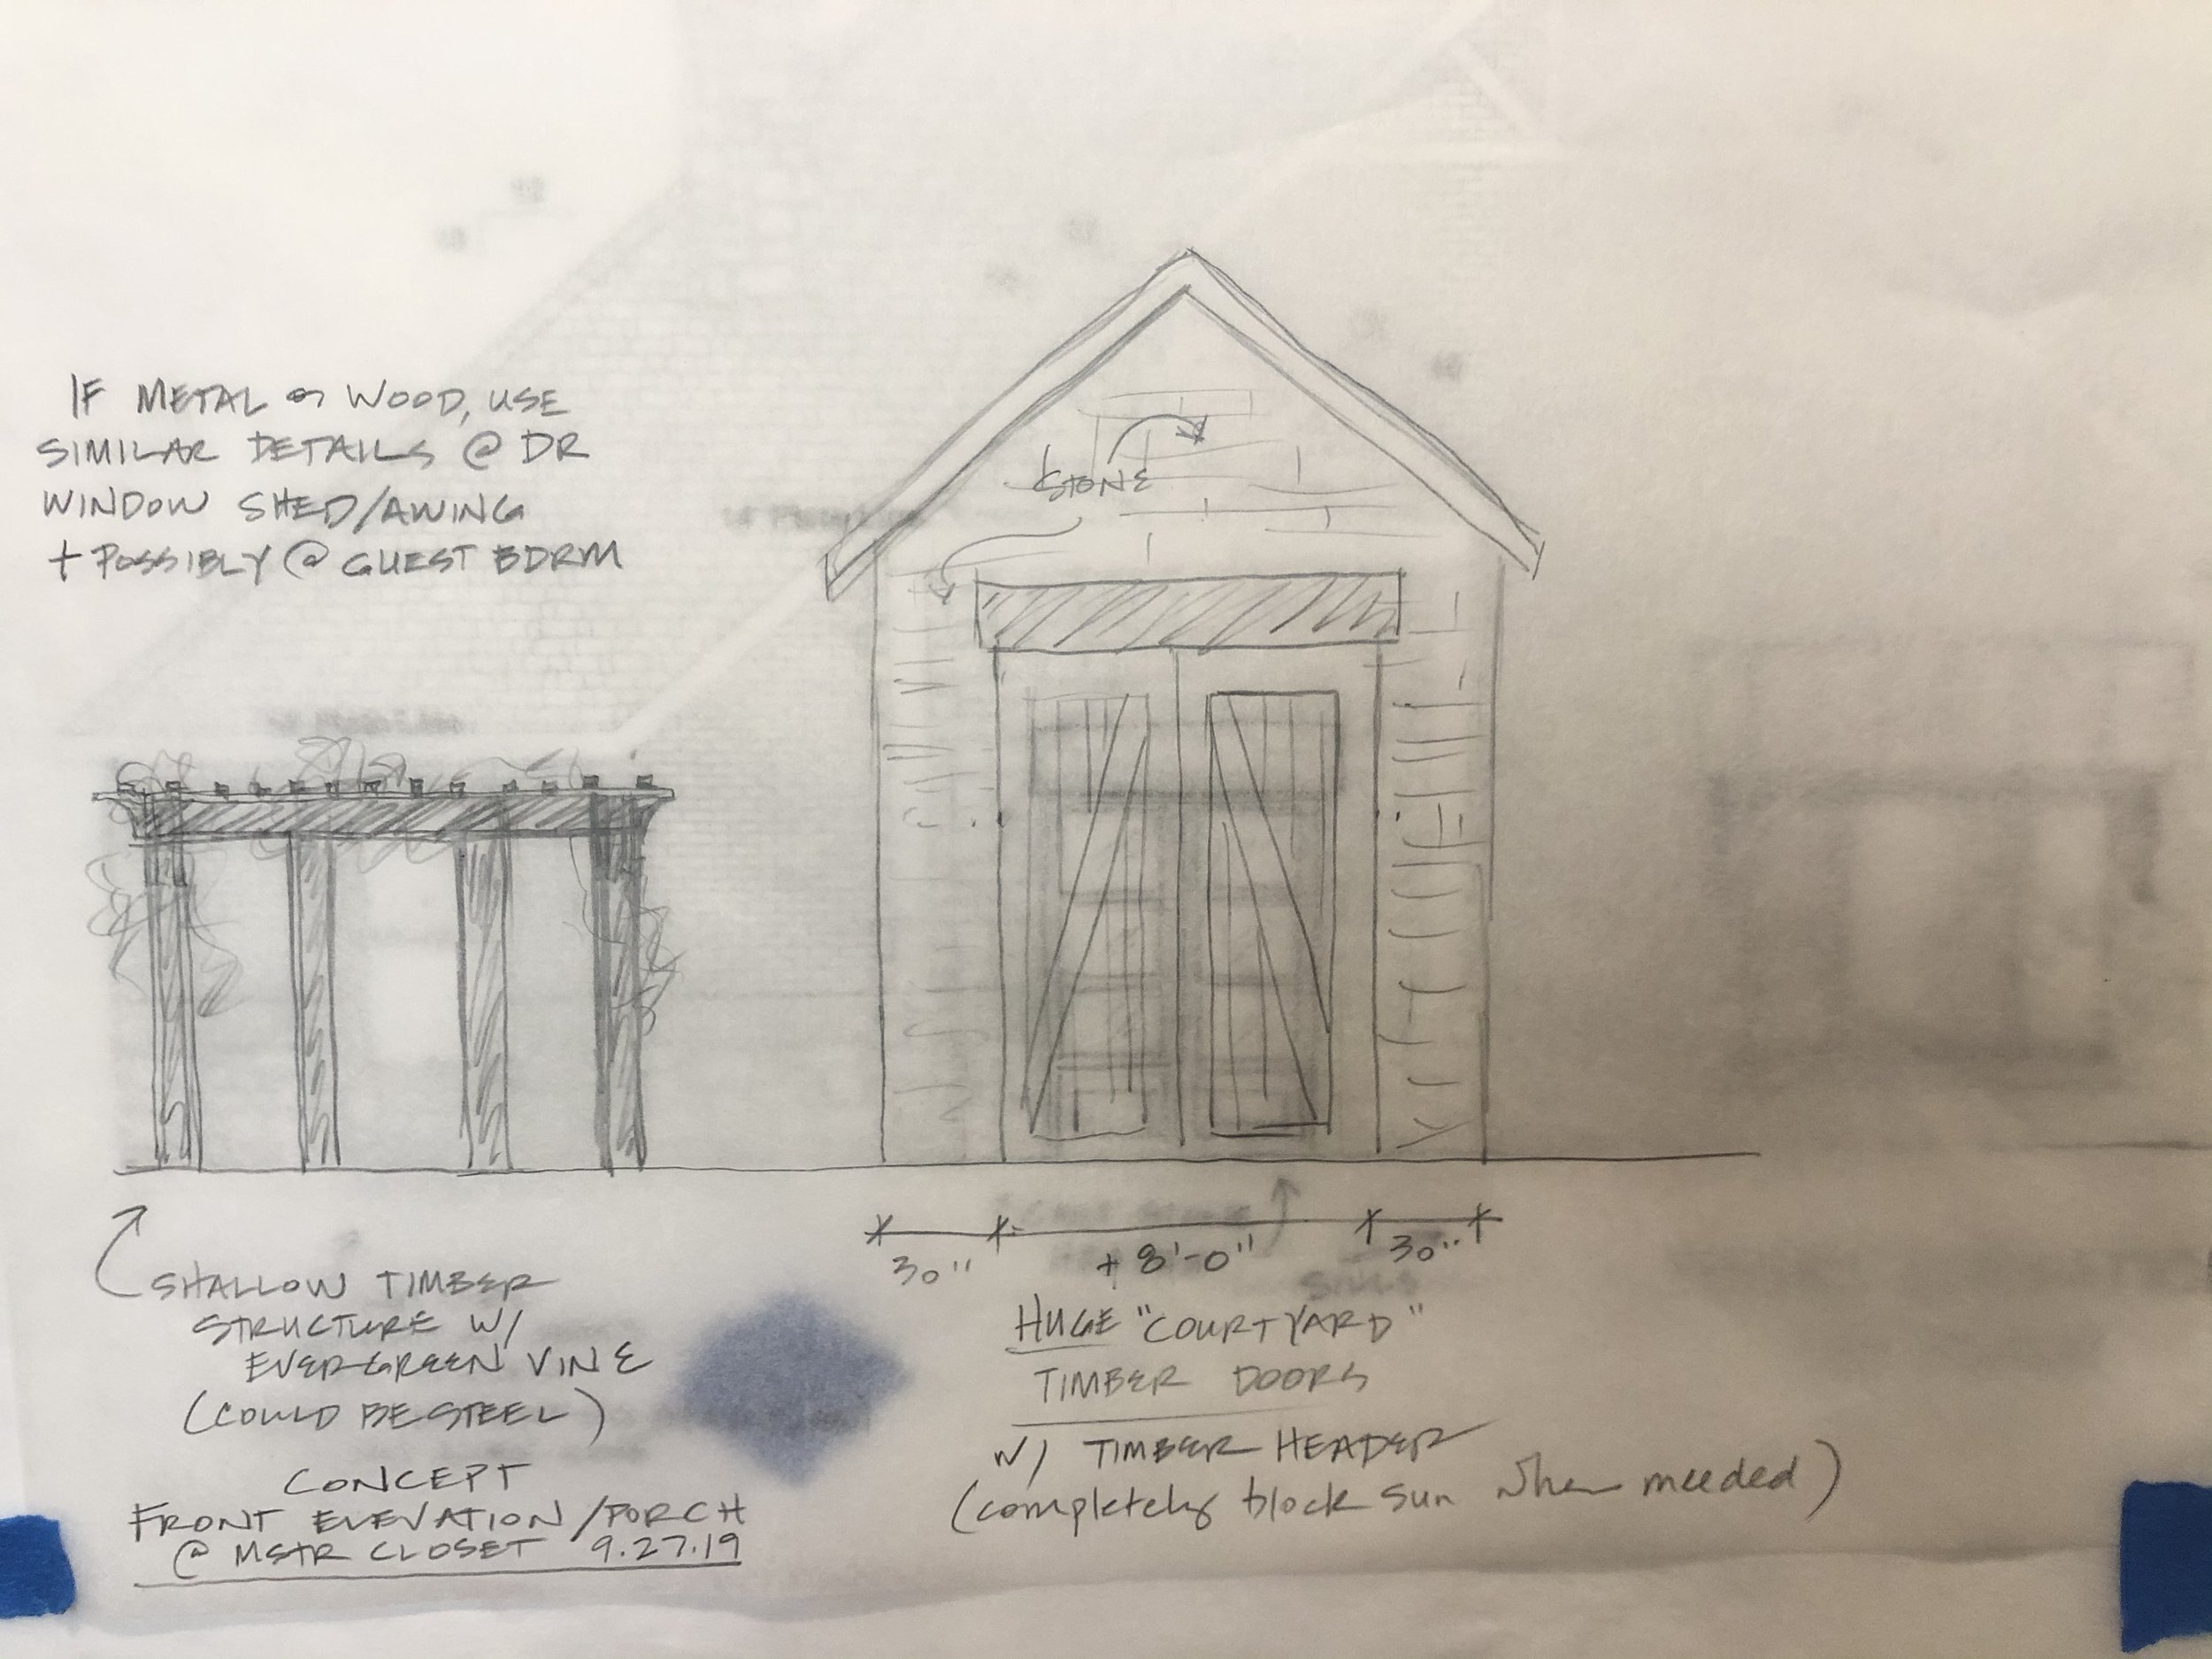 IF METAL or WOOD, USE
SIMILAR DETAILS @ DR
WINDOW SHED/AWING
+ POSSIBLY @ GUEST BDRM
STONE
30"
+ 8'-0"
30"
SHALLOW TIMBER
STRUCTURE W/
EVERGREEN VINE
(COULD BE STEEL)
CONCEPT
FRONT ELEVATION/PORCH
@ MSTR CLOSET 9.27.19
HUGE "COURTYARD"
TIMBER DOORS
W/ TIMBER HEADER
(completely block sun when needed)